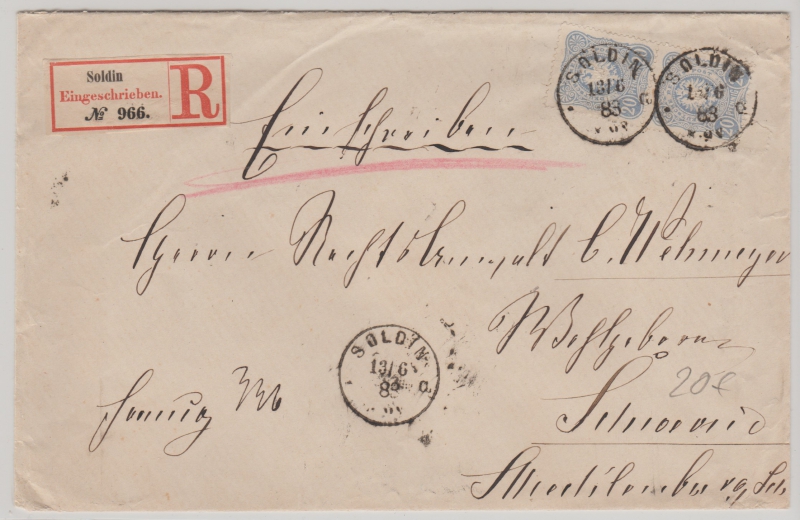 Soldin
Eingeschrieben.
№ 966.
R
SOLDIN
13/6
83
SOLDIN
13/6
83
Einschreiben
Herrn Rechtsanwalt C. Wehmeyer
Wohlgeboren
SOLDIN
13/6
83
20€
Schwerin
Mecklenburg Sch